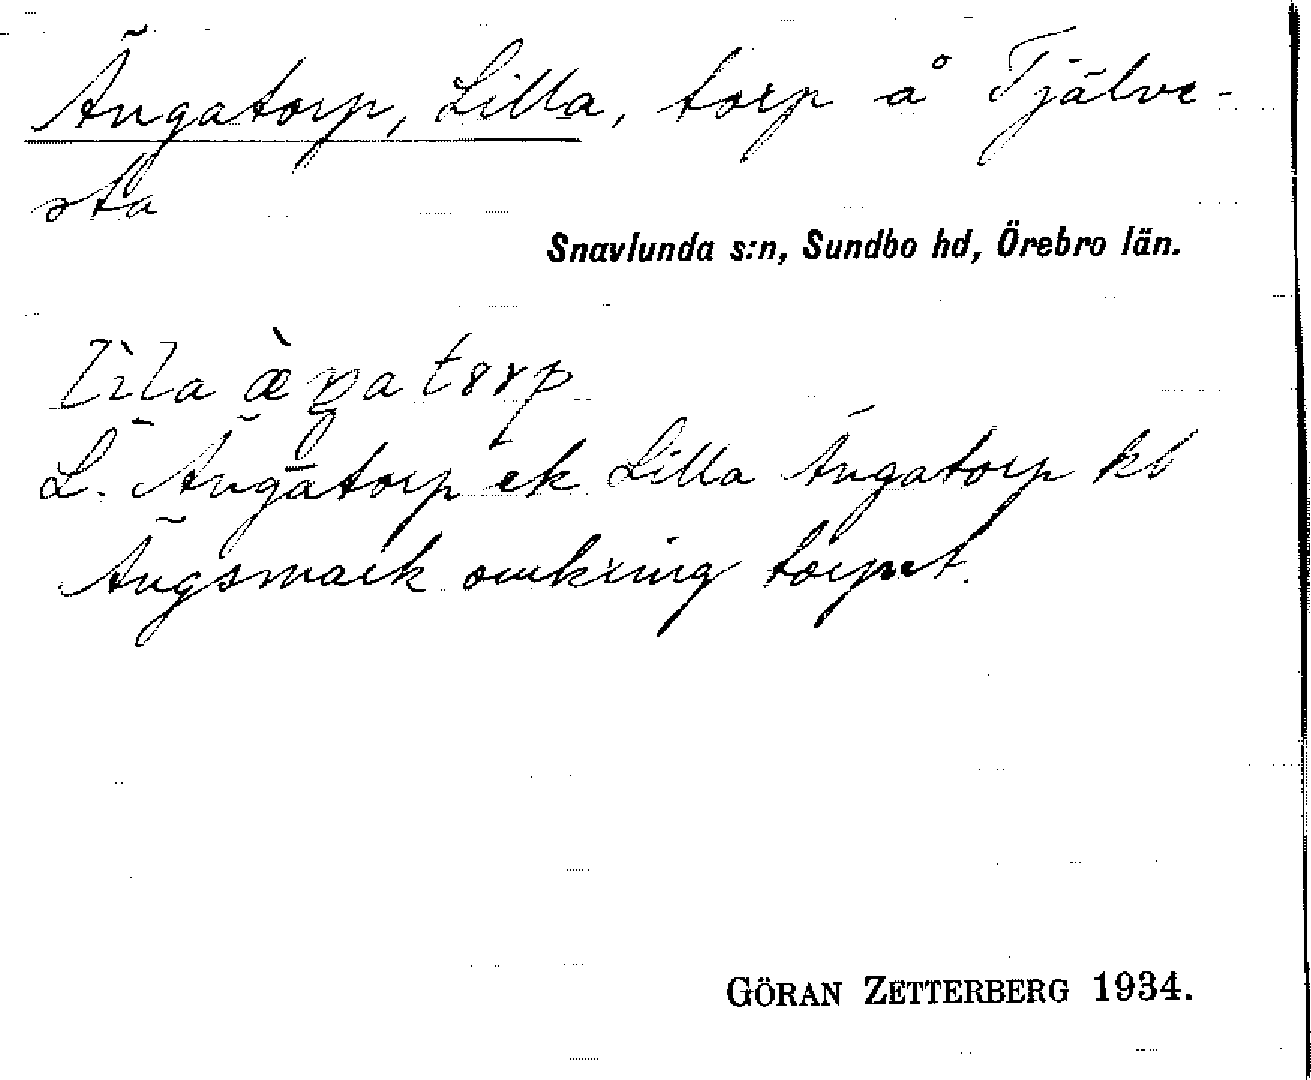 Ängatorp, Lilla, torp å Tjälve-
sta
Snavlunda s:n, Sundbo hd, Örebro län.
lìla æ̀ŋatorp
L. Ängatorp ek Lilla Ängatorp ks
Ängsmark omkring torpet.
GÖRAN ZETTERBERG 1934.